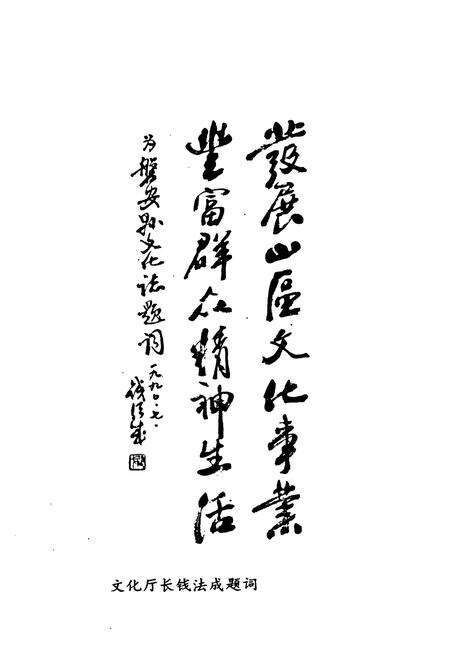 發展山區文化事業
豐富群众精神生活
为磐安县文化誌题词
一九九〇·七·
钱法成
文化厅长钱法成题词